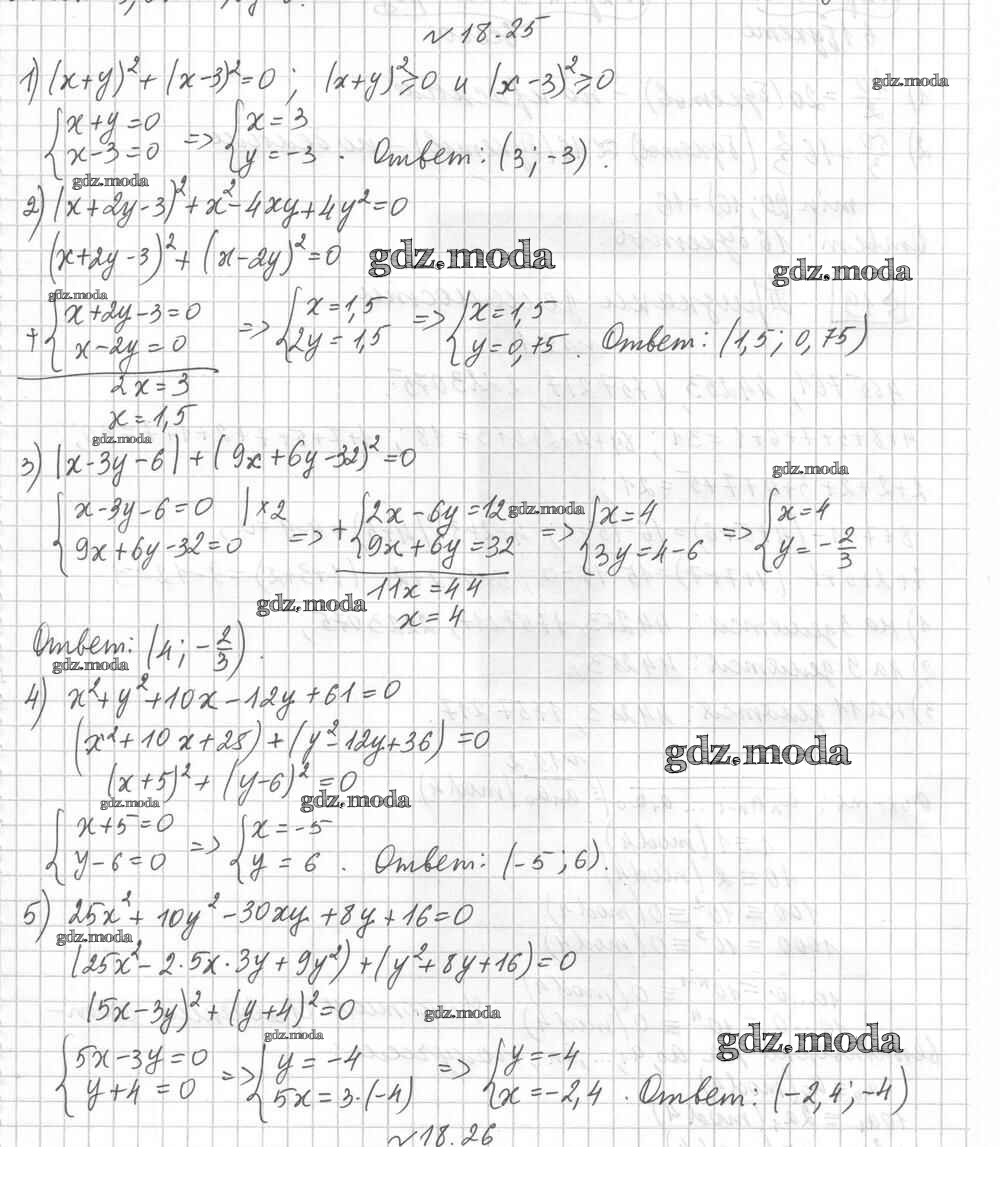 № 18.25
1) (x+y)² + (x-3)² = 0 ; (x+y)² ≥ 0 и (x-3)² ≥ 0
gdz.moda
{ x+y=0 => { x=3
x-3=0 y=-3 . Ответ: (3; -3).
gdz.moda
2) (x+2y-3)² + x² - 4xy + 4y² = 0
(x+2y-3)² + (x-2y)² = 0
gdz.moda
gdz.moda
gdz.moda
+ { x+2y-3=0 => { x=1,5 => { x=1,5
x-2y=0 2y=1,5 y=0,75 . Ответ: (1,5; 0,75)
2x=3
x=1,5
gdz.moda
3) |x-3y-6| + (9x+6y-32)² = 0
gdz.moda
{ x-3y-6=0 | ×2 => + { 2x-6y=12 => { x=4 => { x=4
gdz.moda
9x+6y-32=0 9x+6y=32 3y=4-6 y=-2/3
11x=44
gdz.moda
x=4
Ответ: (4; -2/3).
gdz.moda
4) x² + y² + 10x - 12y + 61 = 0
(x² + 10x + 25) + (y² - 12y + 36) = 0
gdz.moda
(x+5)² + (y-6)² = 0
gdz.moda
gdz.moda
{ x+5=0 => { x=-5
y-6=0 y=6 . Ответ: (-5; 6).
5) 25x² + 10y² - 30xy + 8y + 16 = 0
gdz.moda
(25x² - 2·5x·3y + 9y²) + (y² + 8y + 16) = 0
(5x-3y)² + (y+4)² = 0
gdz.moda
gdz.moda
gdz.moda
{ 5x-3y=0 => { y=-4 => { y=-4
y+4=0 5x=3·(-4) x=-2,4 . Ответ: (-2,4; -4)
№ 18.26